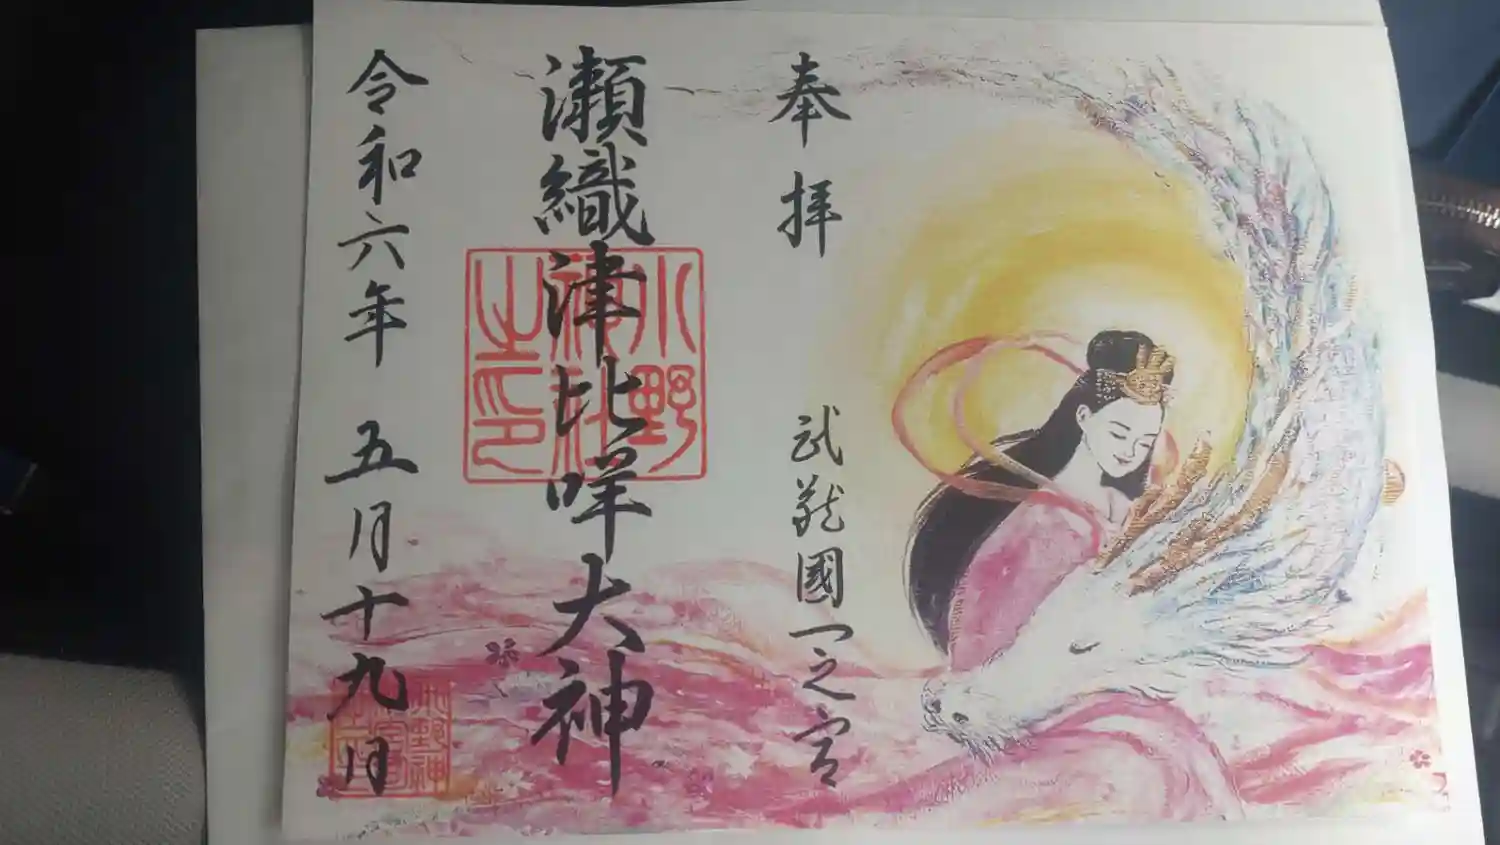 奉拝
武蔵國一之宮
瀬織津比咩大神
小野神社之印
令和六年 五月十九日